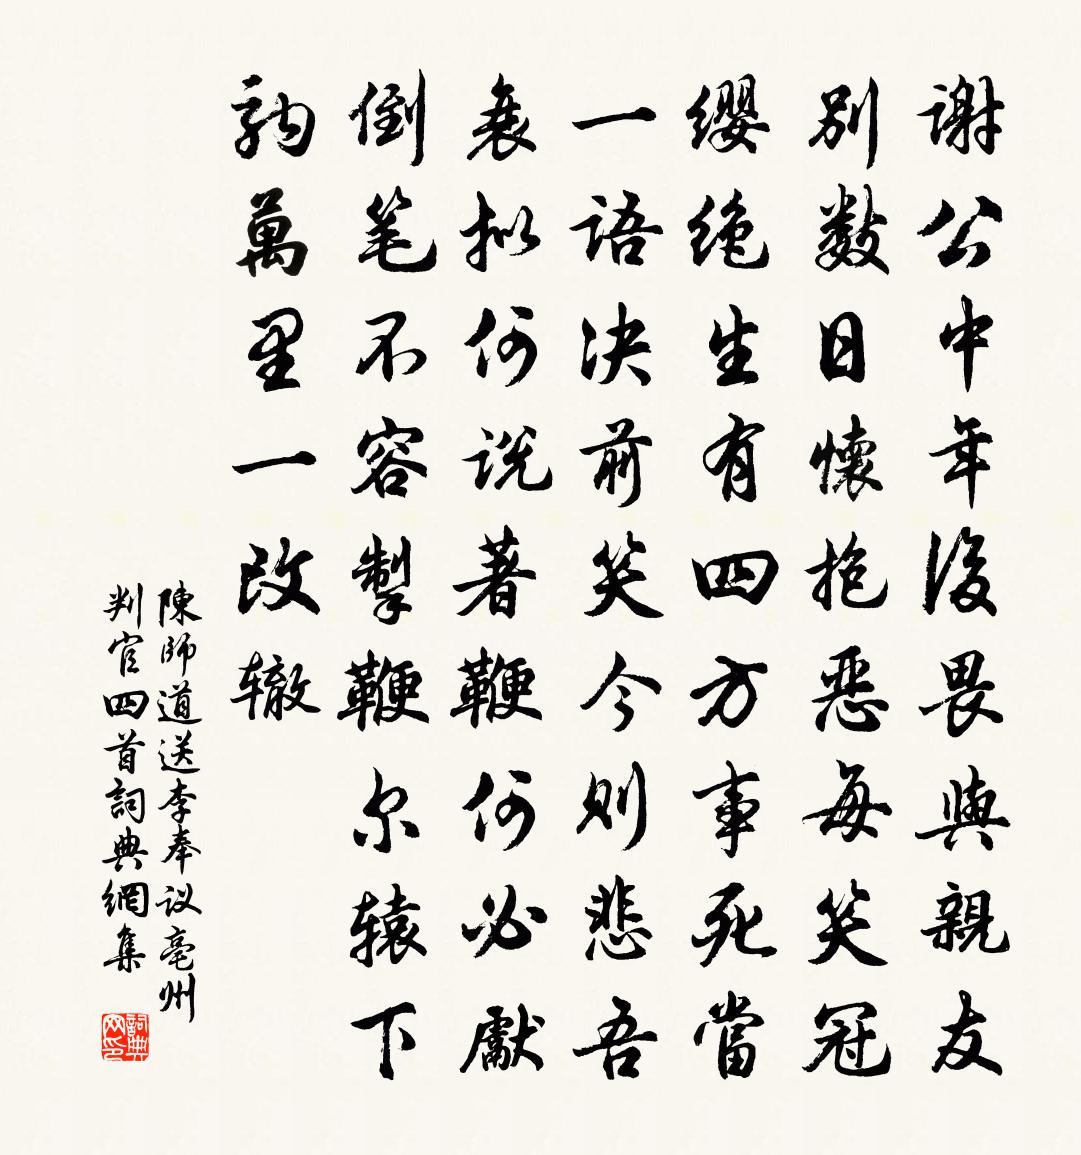 谢公中年后畏與親友
别数日懷抱惡每笑冠
缨绝生有四方事死當
一语决前笑今则悲吾
衰拟何说著鞭何必獻
倒笔不容掣鞭尔辕下
驹萬里一改辙
陳師道送李奉议亳州
判官四首詞典網集
詞典网印